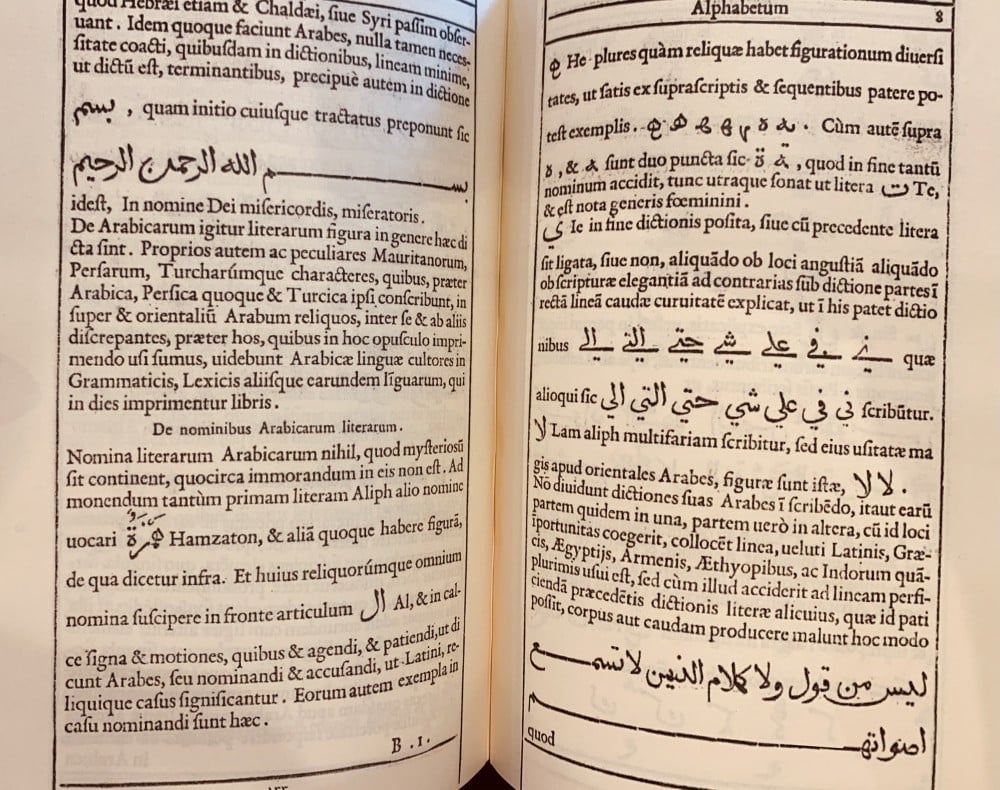 quod Hebræi etiam & Chaldæi, ſiue Syri paſſim obſer-
uant. Idem quoque faciunt Arabes, nulla tamen neceſ-
ſitate coacti, quibuſdam in dictionibus, lineam minime,
ut dictũ eſt, terminantibus, precipuè autem in dictione
بسم , quam initio cuiuſque tractatus preponunt ſic
بســـم الله الرحمن الرحيم
ideſt, In nomine Dei miſericordis, miſeratoris.
De Arabicarum igitur literarum figura in genere hæc di
cta ſint. Proprios autem ac peculiares Mauritanorum,
Perſarum, Turcharúmque characteres, quibus, præter
Arabica, Perſica quoque & Turcica ipſi conſcribunt, in
ſuper & orientaliũ Arabum reliquos, inter ſe & ab aliis
diſcrepantes, præter hos, quibus in hoc opuſculo impri-
mendo uſi ſumus, uidebunt Arabicæ linguæ cultores in
Grammaticis, Lexicis aliiſque earundem lĩguarum, qui
in dies imprimentur libris.
De nominibus Arabicarum literarum.
Nomina literarum Arabicarum nihil, quod myſteriosũ
ſit continent, quocirca immorandum in eis non eſt. Ad
monendum tantùm primam literam Aliph alio nomine
uocari همزة Hamzaton, & aliã quoque habere figurã,
de qua dicetur infra. Et huius reliquorúmque omnium
nomina ſuſcipere in fronte articulum ال Al, & in cal-
ce ſigna & motiones, quibus & agendi, & patiendi, ut di
cunt Arabes, ſeu nominandi & accuſandi, ut Latini, re-
liquique caſus ſignificantur. Eorum autem exempla in
caſu nominandi ſunt hæc.
B.1.
Alphabetum 8
ه He plures quàm reliquæ habet figurationum diuerſi
tates, ut ſatis ex ſupraſcriptis & ſequentibus patere po-
teſt exemplis. Cùm autẽ ſupra
ه, & ـه ſunt duo puncta ſic ة ـة, quod in fine tantũ
nominum accidit, tunc utraque ſonat ut litera ت Te,
& eſt nota generis fœminini.
ي Ie in fine dictionis poſita, ſiue cũ precedente litera
ſit ligata, ſiue non, aliquãdo ob loci anguſtiã aliquãdo
ob ſcripturæ elegantiã ad contrarias ſũb dictione partes ĩ
rectã lineã caudæ curuitatẽ explicat, ut ĩ his patet dictio
nibus الي التي حتي شي علي في ني quæ
alioqui ſic الي التي حتي شي علي في ني ſcribũtur.
لا Lam aliph multifariam ſcribitur, ſed eius uſitatæ ma
gis apud orientales Arabes, figuræ ſunt iſtæ, لا لا.
Nõ diuidunt dictiones ſuas Arabes ĩ ſcribẽdo, itaut earũ
partem quidem in una, partem uerò in altera, cũ id loci
ĩportunitas coegerit, collocẽt linea, ueluti Latinis, Græ-
cis, Ægyptijs, Armenis, Æthyopibus, ac Indorum quã-
plurimis uſui eſt, ſed cùm illud acciderit ad lineam perfi-
ciendã præcedẽtis dictionis literæ alicuius, quæ id pati
poſſit, corpus aut caudam producere malunt hoc modo
ليس من قول ولا كلام الذين لا تسمـــع
اصواتهـــم
quod